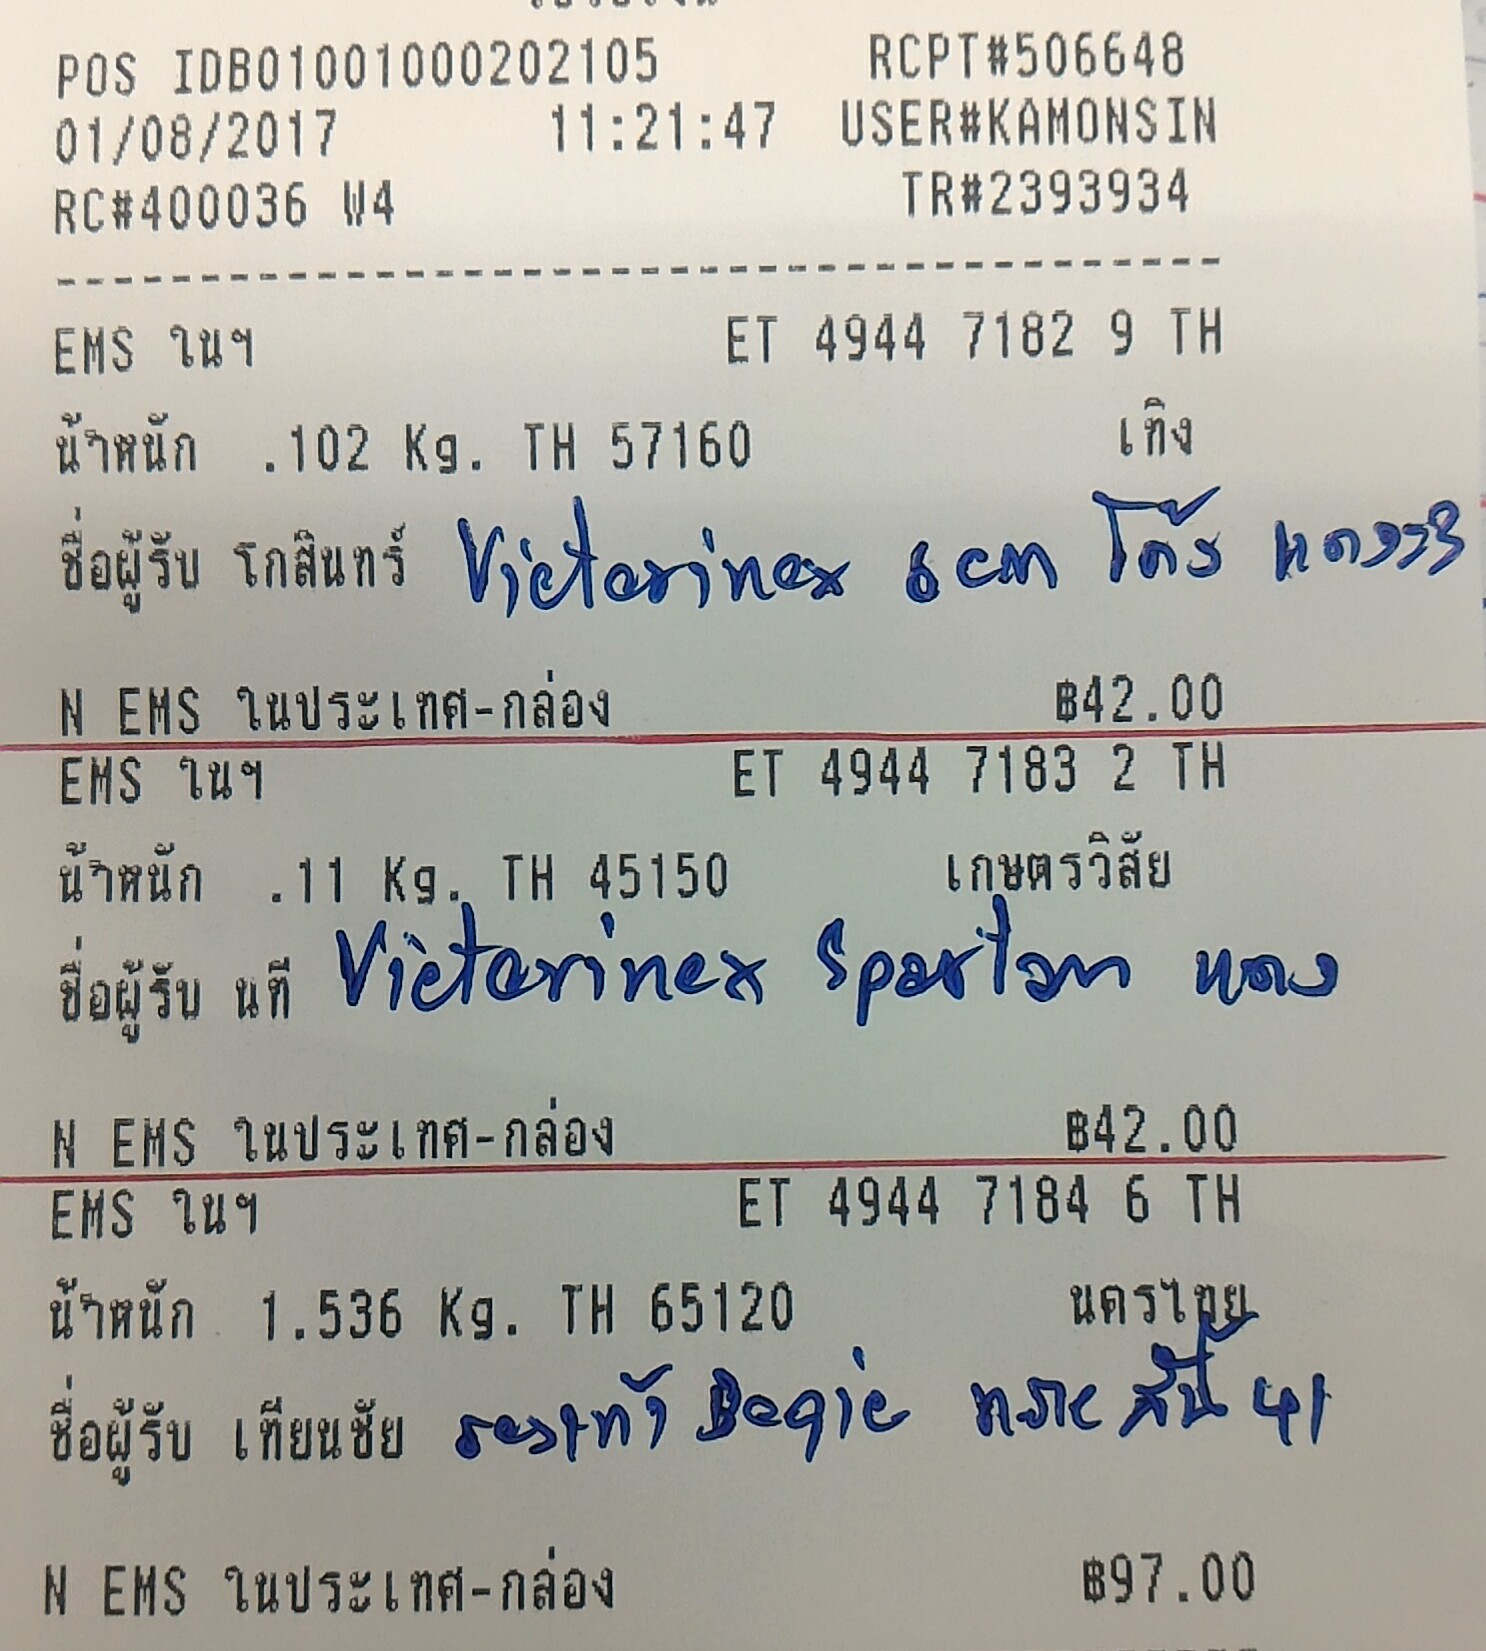 POS IDB01001000202105 RCPT#506648
01/08/2017 11:21:47 USER#KAMONSIN
RC#400036 W4 TR#2393934
EMS ในฯ ET 4944 7182 9 TH
น้ำหนัก .102 Kg. TH 57160 เทิง
ชื่อผู้รับ โกสินทร์ Victorinox 8 cm โค้ง
N EMS ในประเทศ-กล่อง ฿42.00
EMS ในฯ ET 4944 7183 2 TH
น้ำหนัก .11 Kg. TH 45150 เกษตรวิสัย
ชื่อผู้รับ นที Victorinox Spartan แดง
N EMS ในประเทศ-กล่อง ฿42.00
EMS ในฯ ET 4944 7184 6 TH
น้ำหนัก 1.536 Kg. TH 65120 นครไทย
ชื่อผู้รับ เทียนชัย รองเท้า 41
N EMS ในประเทศ-กล่อง ฿97.00